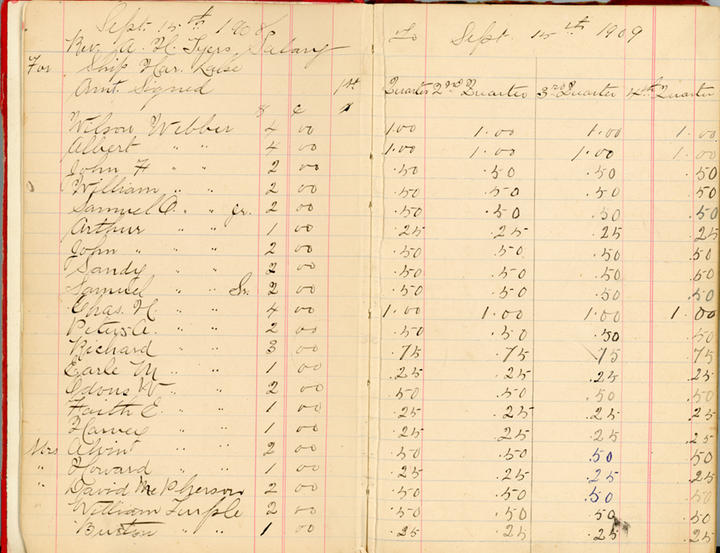 Sept. 15th 1908 To Sept. 15th 1909
Rev. A. H. Tyers, Salary
For Ship Har. Lake
Amt. Signed 1st Quarter 2nd Quarter 3rd Quarter 4th Quarter
$ c
Wilson Webber 4 00 1.00 1.00 1.00 1.00
Albert " " 4 00 1.00 1.00 1.00 1.00
John H " " 2 00 .50 .50 .50 .50
William " " 2 00 .50 .50 .50 .50
Samuel O. " " Jr. 2 00 .50 .50 .50 .50
Arthur " " 1 00 .25 .25 .25 .25
John " " 2 00 .50 .50 .50 .50
Sandy " " 2 00 .50 .50 .50 .50
Samuel " " Sr. 2 00 .50 .50 .50 .50
Chas. H. " " 4 00 1.00 1.00 1.00 1.00
" " 2 00 .50 .50 .50 .50
Richard " " 3 00 .75 .75 .75 .75
Earle M " " 1 00 .25 .25 .25 .25
W " " 2 00 .50 .50 .50 .50
Faith E. " " 1 00 .25 .25 .25 .25
Harvey " " 1 00 .25 .25 .25 .25
Mrs Alvin " " 2 00 .50 .50 .50 .50
" Howard " " 1 00 .25 .25 .25 .25
" David McPherson 2 00 .50 .50 .50 .50
William Turple 2 00 .50 .50 .50 .50
Burton " 1 00 .25 .25 .25 .25